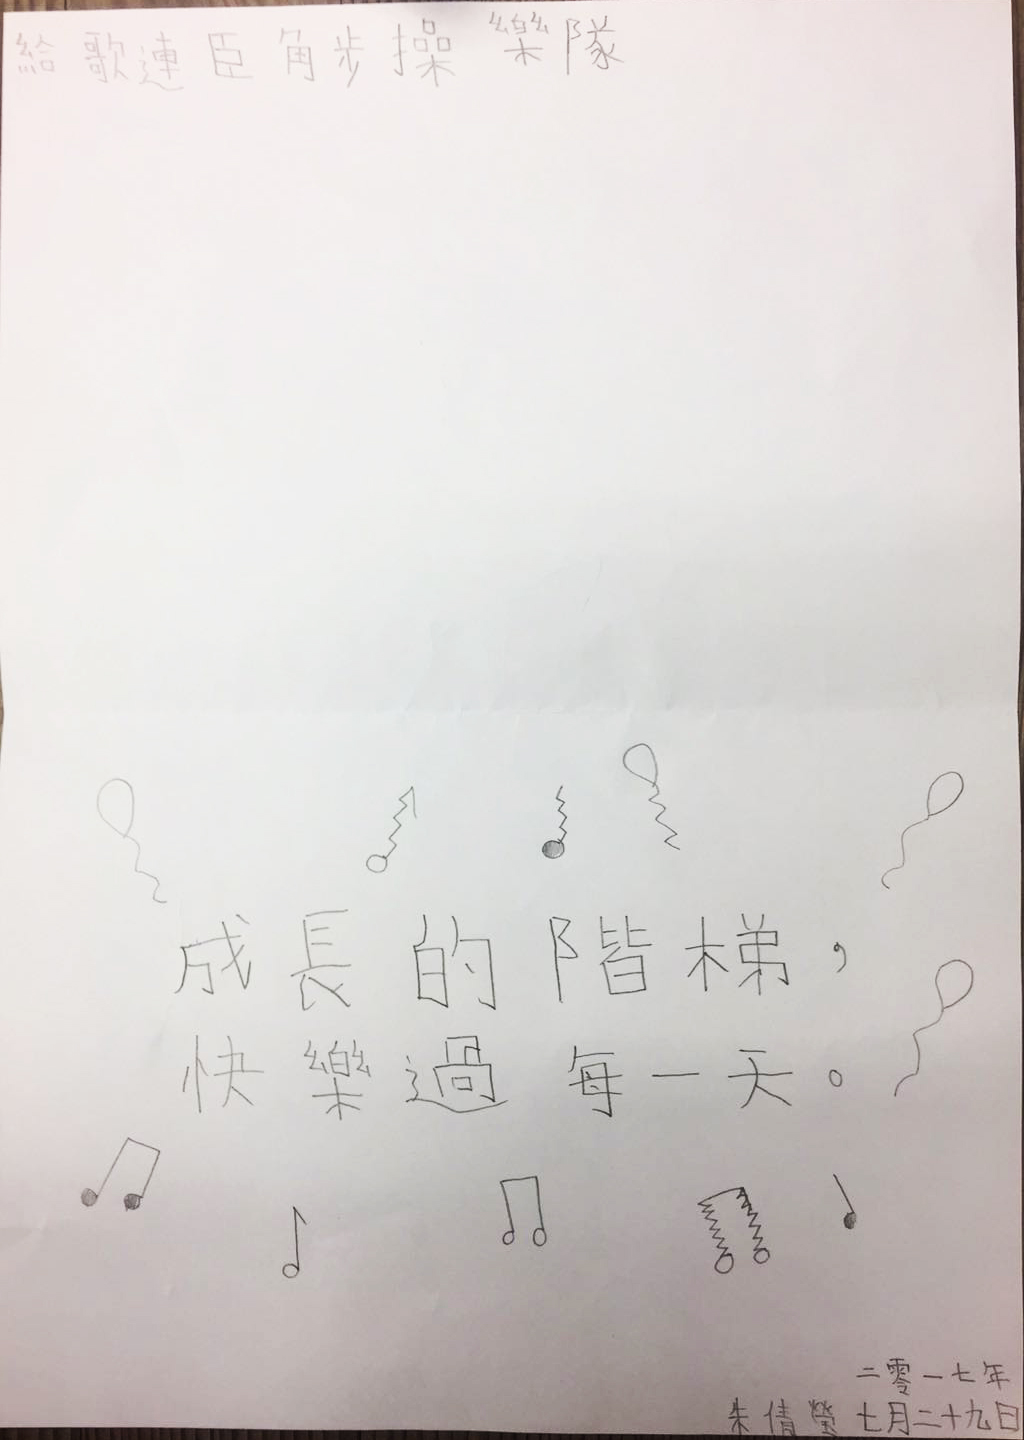 給歌連臣角步操樂隊
成長的階梯，
快樂過每一天。
二零一七年
朱倩瑩 七月二十九日